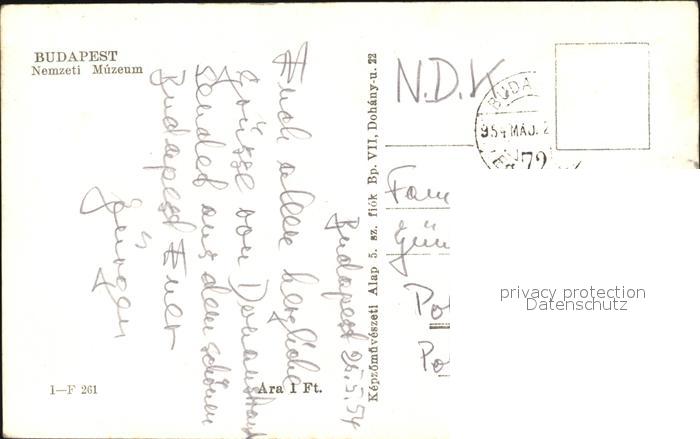 BUDAPEST
Nemzeti Múzeum
Budapest 25.5.54
Euch allen herzliche
Grüsse von Donaustrand
sendet aus dem schönen
Budapest Euer
Jürgen
1—F 261
Ára 1 Ft.
Képzőművészeti Alap 5. sz. fiók Bp. VII, Dohány-u. 22
N.D.K
BUDA
954 MÁJ. 2
72
Fam
Gün
Po
Po
privacy protection
Datenschutz